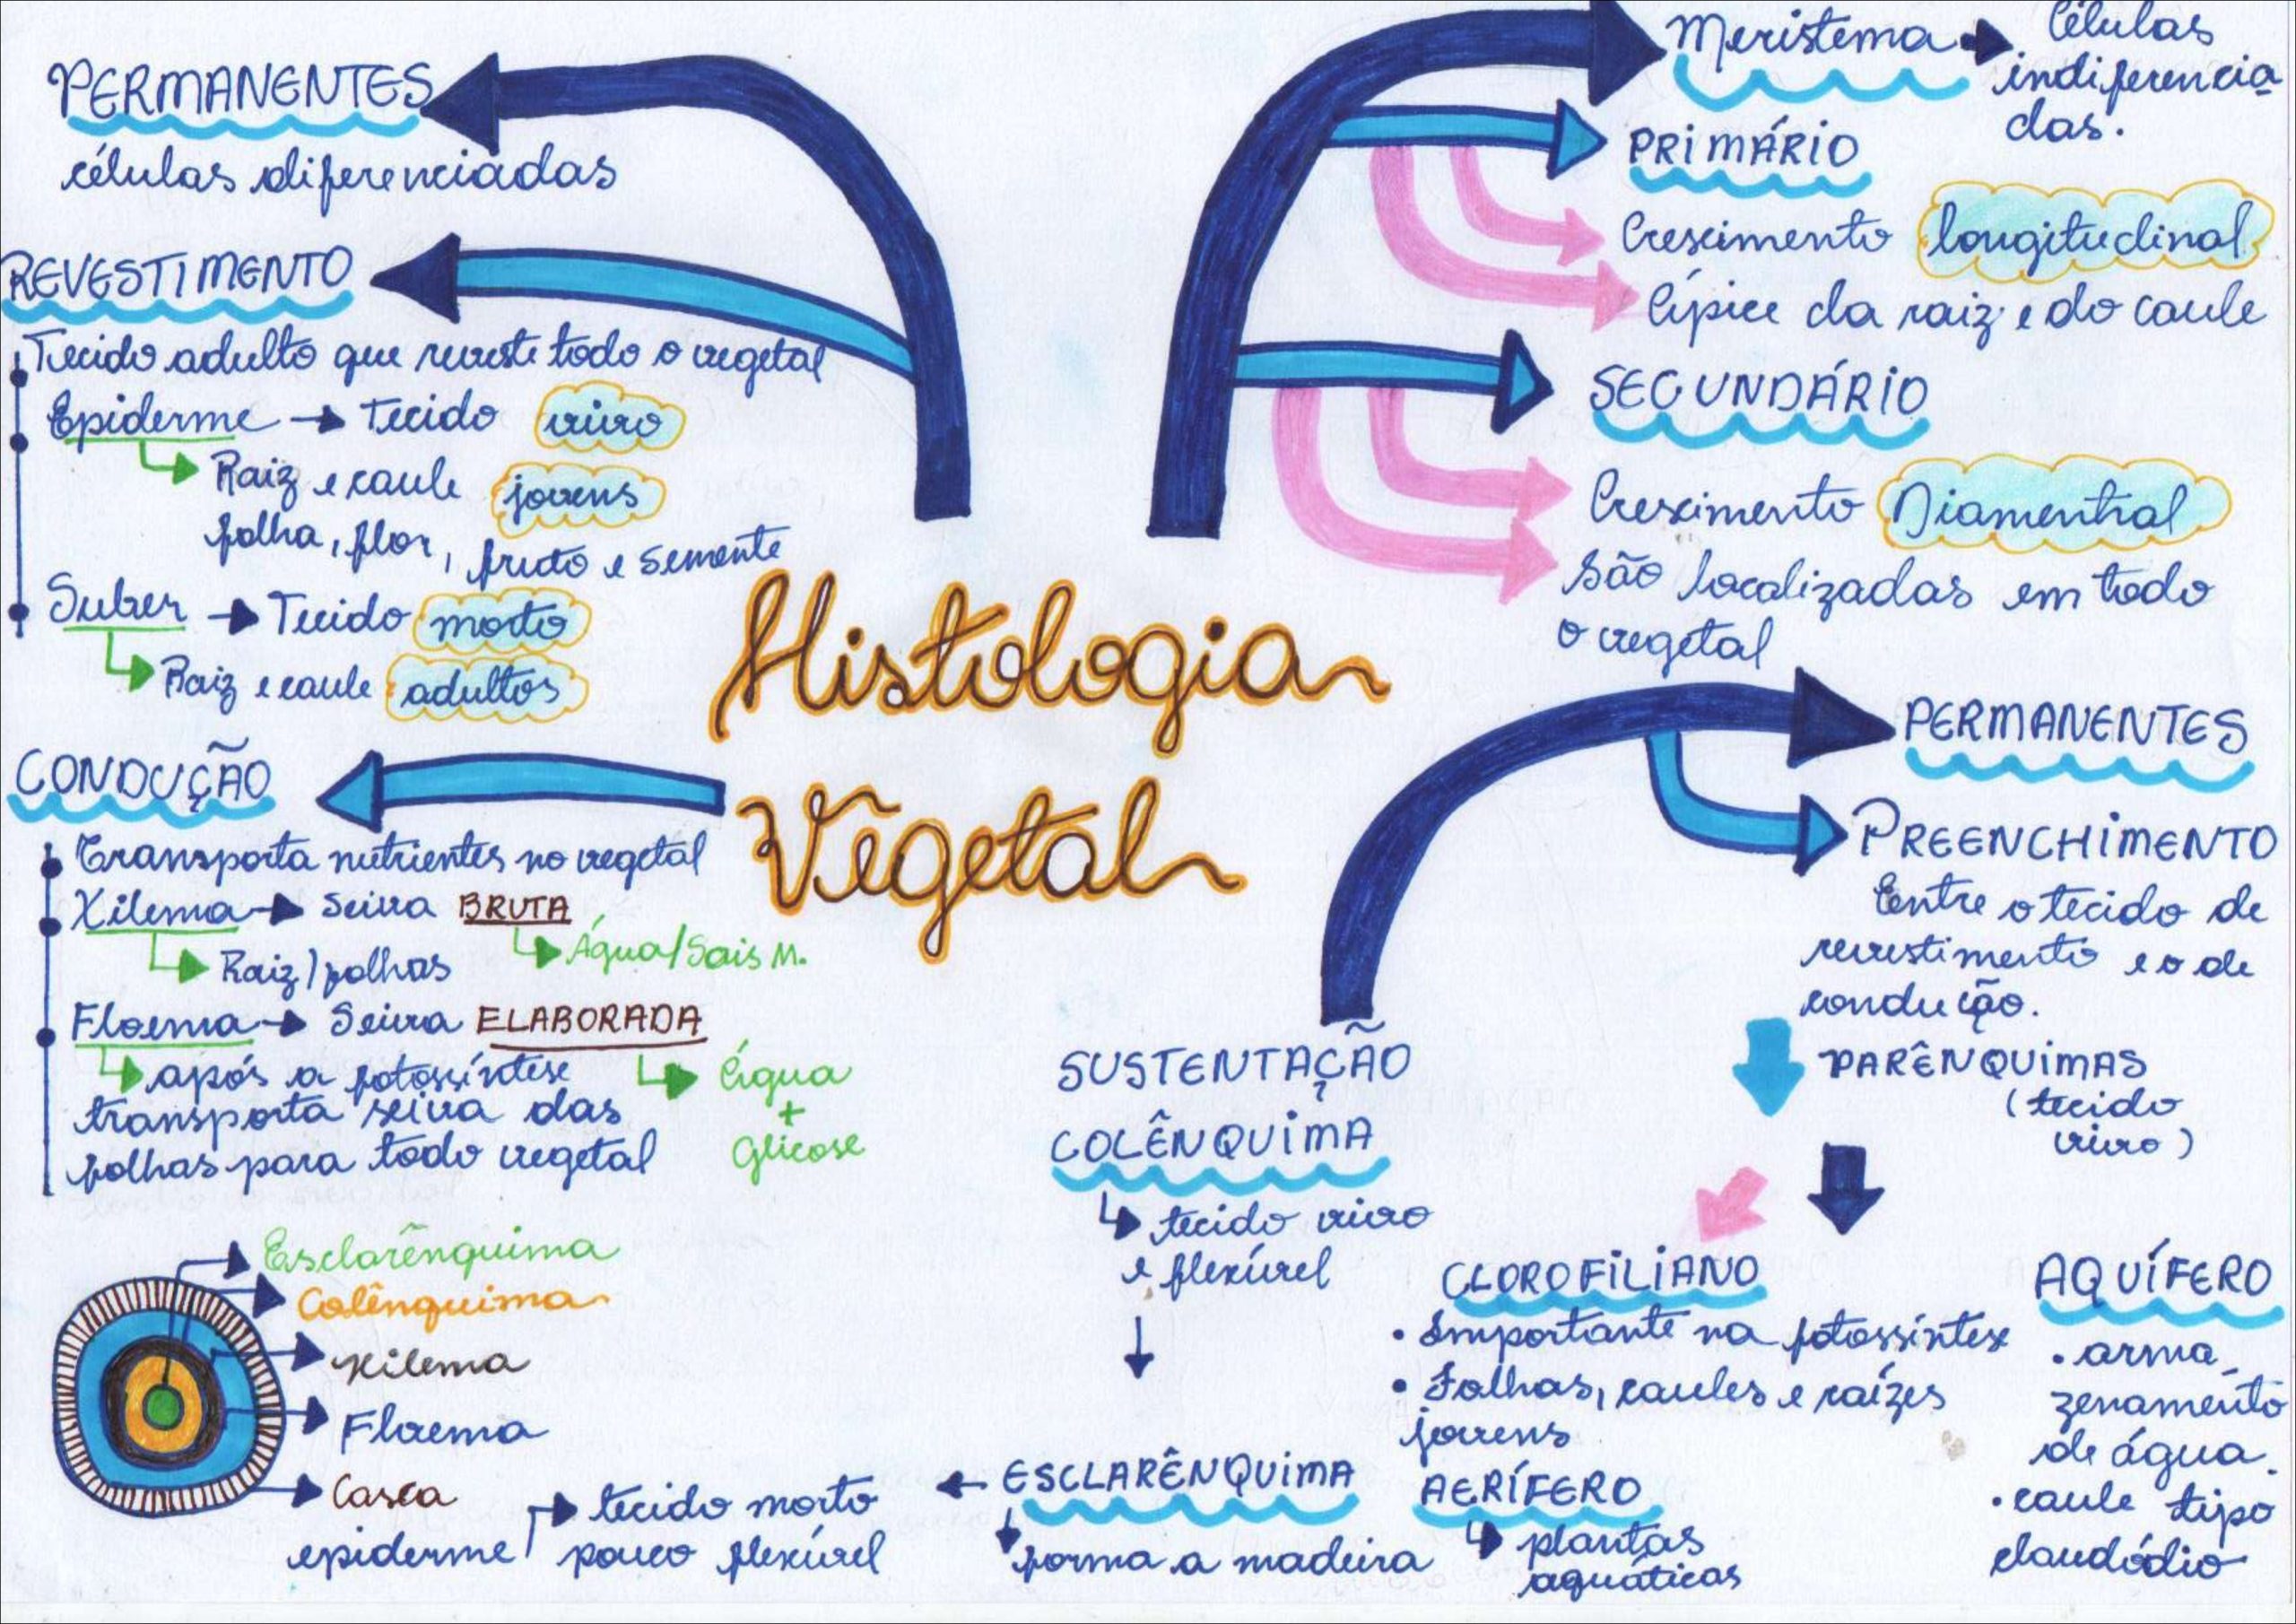 PERMANENTES
células diferenciadas
REVESTIMENTO
Tecido adulto que reveste todo o vegetal
Epiderme → Tecido vivo
Raiz e caule jovens
folha, flor, fruto e semente
Suber → Tecido morto
Raiz e caule adultos
CONDUÇÃO
Transporta nutrientes no vegetal
Xilema → Seiva BRUTA
Raiz/folhas
Água/Sais M.
Floema → Seiva ELABORADA
após a fotossíntese
transporta seiva das
folhas para todo vegetal
Água
+
Glicose
Esclarênquima
Colênquima
Xilema
Floema
Casca
epiderme
Histologia
Vegetal
Meristema → Células
indiferencia
das.
PRIMÁRIO
Crescimento longitudinal
Ápice da raiz e do caule
SECUNDÁRIO
Crescimento Diamentral
São localizadas em todo
o vegetal
PERMANENTES
PREENCHIMENTO
Entre o tecido de
revestimento e o de
condução.
PARÊNQUIMAS
(tecido
vivo)
CLOROFILIANO
• Importante na fotossíntese
• Folhas, caules e raízes
jovens
AERÍFERO
plantas
aquáticas
AQUÍFERO
• arma_
zenamento
de água.
• caule tipo
claudódio
SUSTENTAÇÃO
COLÊNQUIMA
tecido vivo
e flexível
ESCLARÊNQUIMA
forma a madeira
tecido morto
pouco flexível